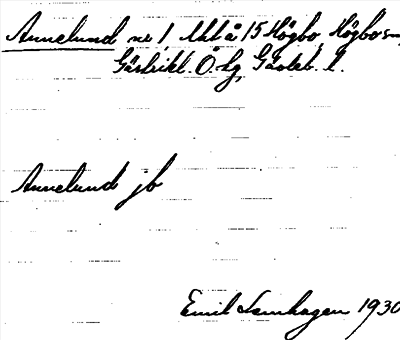 Annelund nr 1 Utb å 15 Högbo, Högbo sn,
Gästrikl. Ö. hg, Gävleb. l.
Annelund jb
Emil Lemhagen 1930